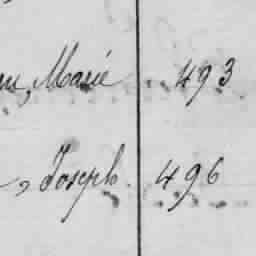 Marie 493
, Joseph. 496